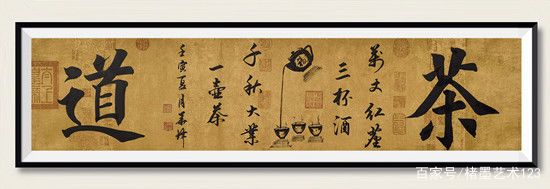 茶
萬丈紅塵
三杯酒
千秋大業
一壺茶
道
壬寅夏月
百家号/楮墨艺术123